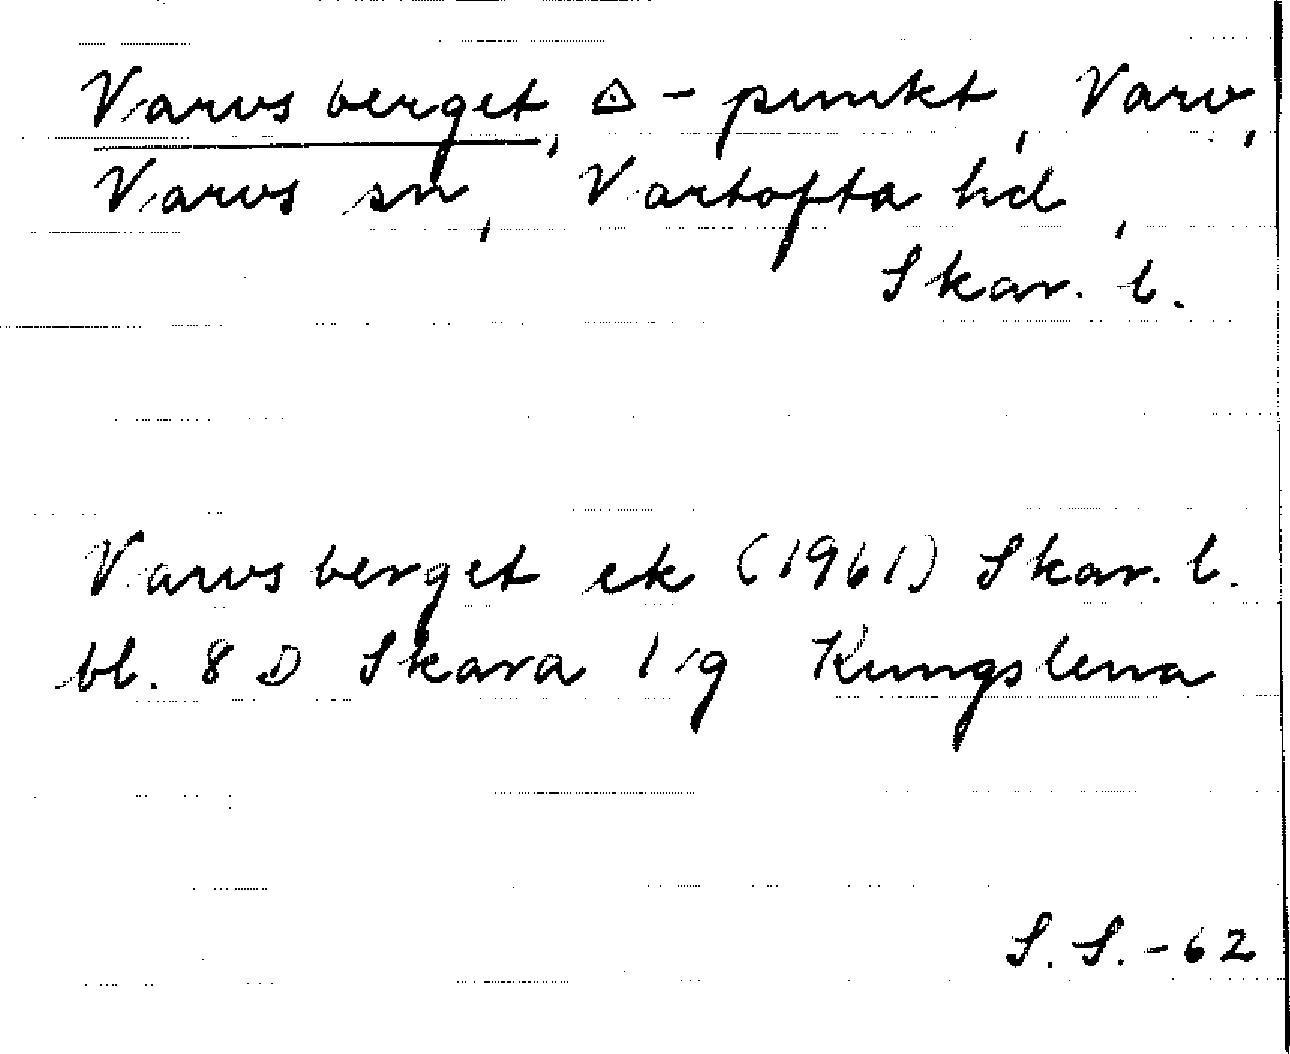 Varvsberget, △-punkt, Varv,
Varvs sn, Vartofta hd,
Skar. l.
Varvsberget ek (1961) Skar. l.
bl. 8 D Skara 1 g Kungslena
S. S. -62